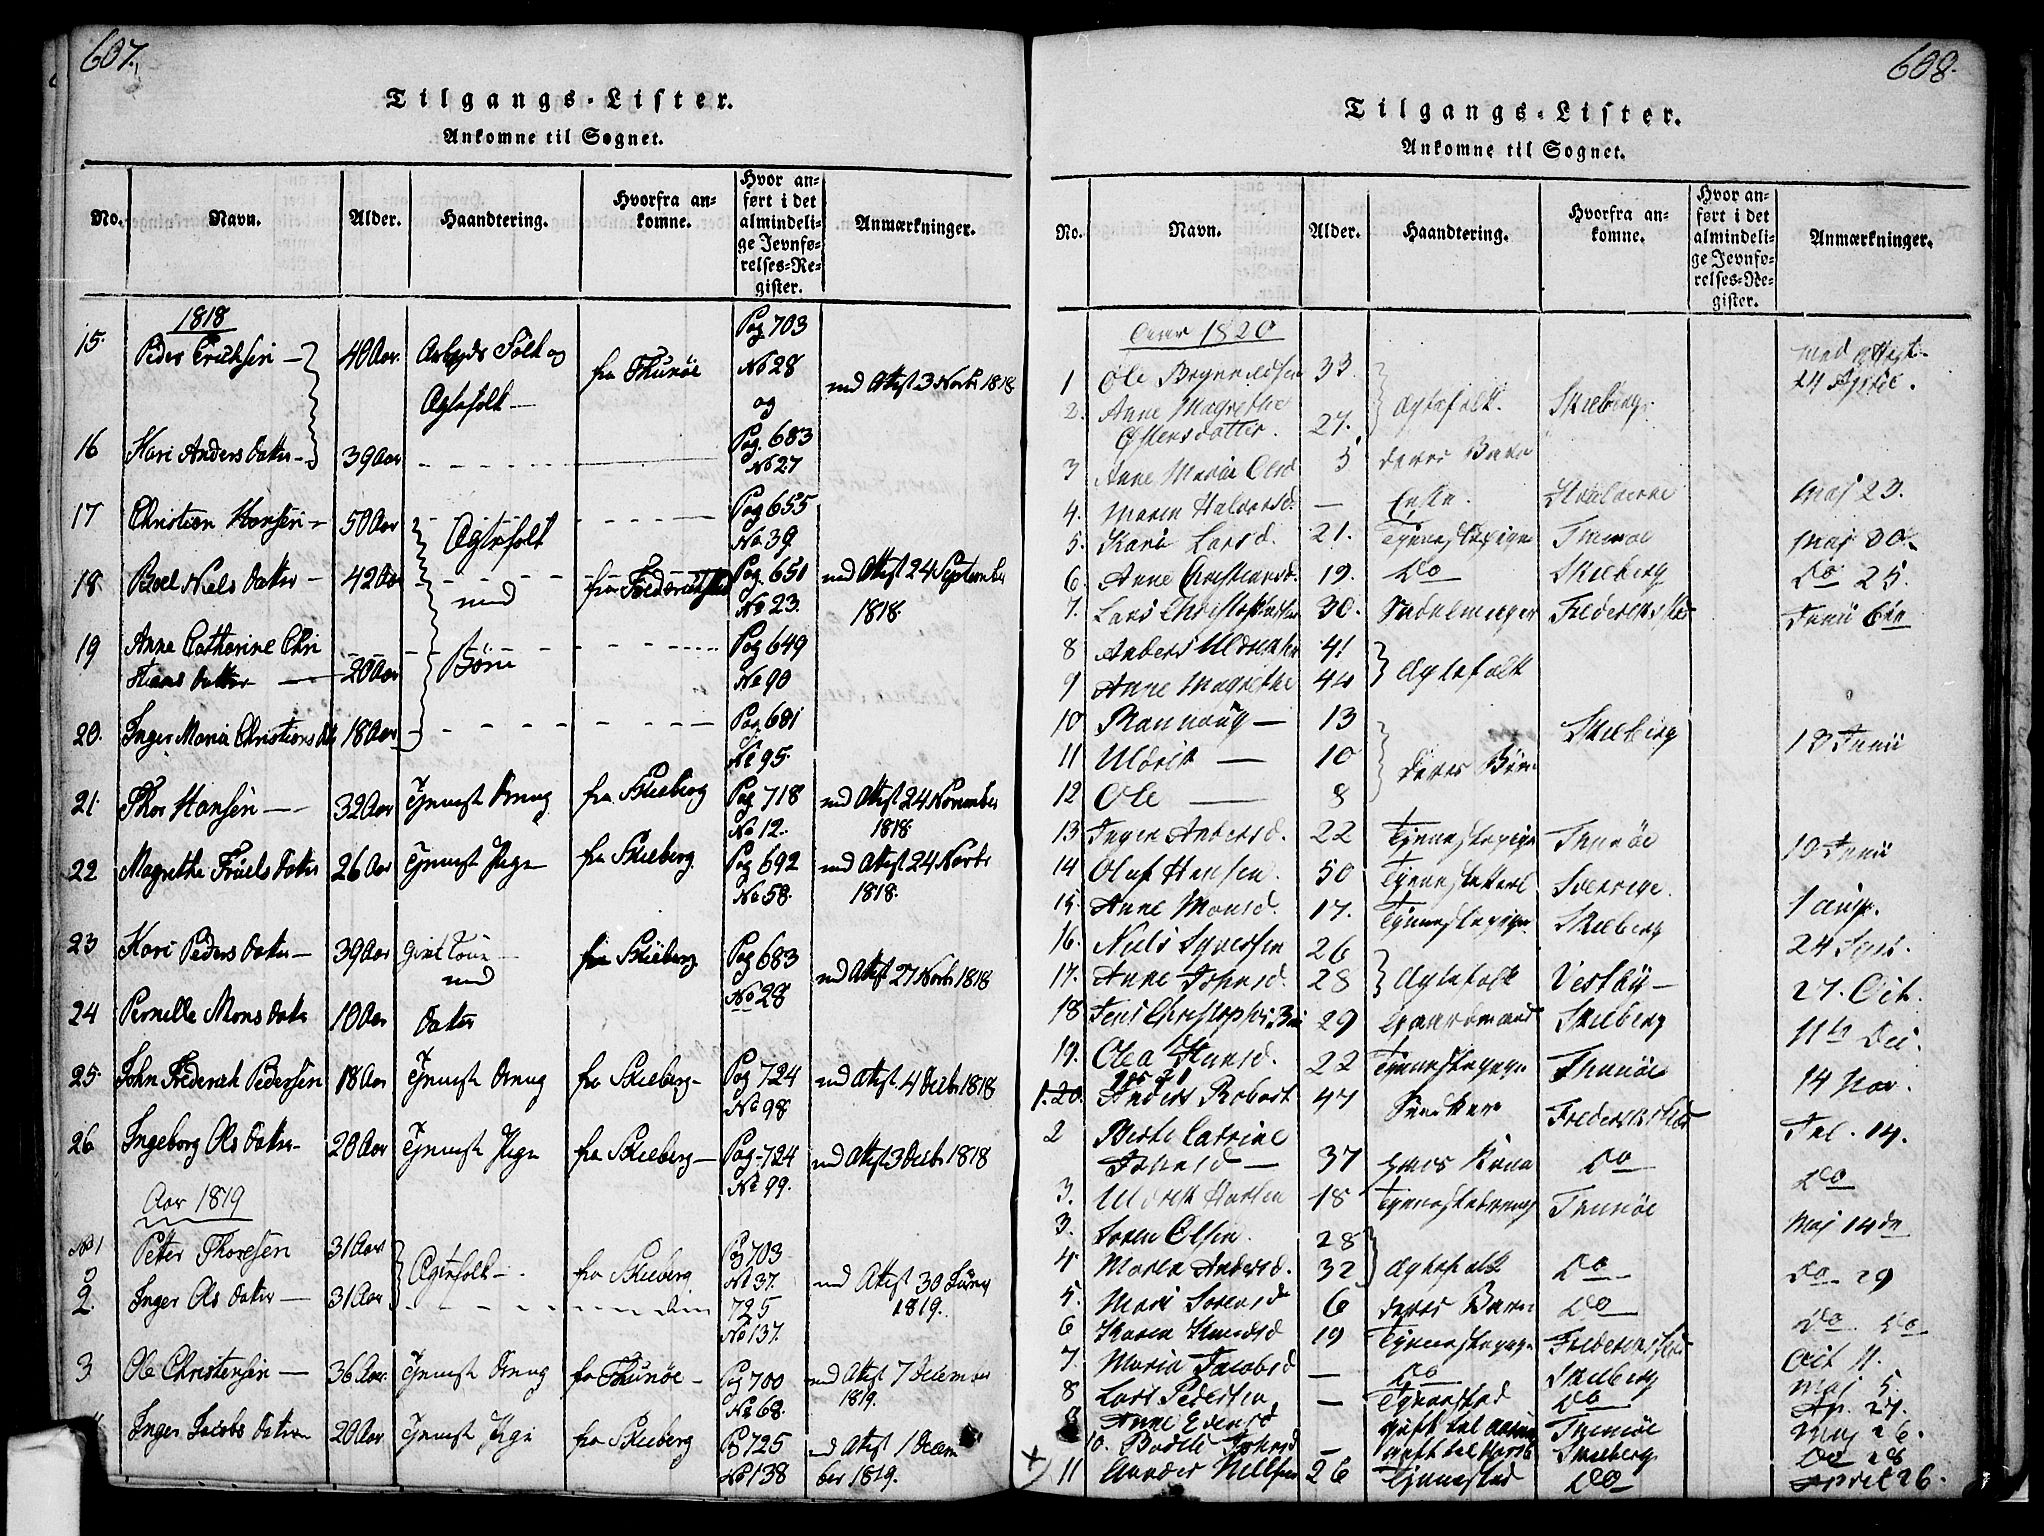 607.
Tilgangs-Lister.
Ankomne til Sognet.
No. Navn. Alder. Haandtering. Hvorfra ankomne. Hvor anført i det almindelige Jevnførelses-Register. Anmærkninger.
1818
15. Peder Erichsen 40 Aar. Arbeyds Folk og Ægtefolk fra Thunøe Pag 703 No 28 og med Attest 3 Novbr 1818
16 Kari Anders Datter 39 Aar Pag. 683 No 27
17 Christian Hansen 50 Aar Ægtefolk Pag 655 No 39.
18. Boel Niels Datter 42 Aar med fra Frederichstad Pag. 651 No 23. med Attest 24 September 1818.
19 Anne Catharine Chri
stians Datter 20 Aar Børn Pag 649 No 90
20. Inger Maria Christians Dtr 18 Aar Pag 681 No 95.
21. Thor Hansen 32 Aar Tjeneste Dreng fra Skieberg Pag 718 No 12. med Attest 24 November 1818.
22 Magrethe Friels Datter 26 Aar Tjeneste Pige fra Skieberg. Pag 692 No 58. med Attest 24 Novbr 1818.
23 Kari Peders Datter 39 Aar med fra Skieberg Pag 683 No 28 med Attest 27 Novbr 1818
24 Pernelle Mons Datter 10 Aar Datter
25. John Frederick Pedersen 18 Aar Tjeneste Dreng fra Skieberg Pag 724 No 98 med Attest 4 Decbr 1818
26 Ingeborg Ols Datter 20 Aar Tjeneste Pige fra Skieberg Pag. 724 No 99. med Attest 3 Decbr 1818
Aar 1819
No 1 Peter Thoresen 31 Aar Ægtefolk fra Skieberg Pag 703 No 37. med Attest 30 1819.
2. Inger Ols Datter 31 Aar 725 No 137.
3 Ole Christensen 36 Aar. Tjeneste Dreng fra Thunøe Pag 700 No 68. med Attest 7 December 1819.
Inger Jacobs Datter 20 Aar Tjeneste Pige fra Skieberg Pag 725 No 138 med Attest 1 December 1819.
608.
Tilgangs-Lister.
Ankomne til Sognet.
No. Navn. Alder. Haandtering. Hvorfra ankomne. Hvor anført i det almindelige Jevnførelses-Register. Anmærkninger.
Aar 1820
1 Ole Brynildsen 33 Ægtefolk. Skieberg. med Attest 24 Aprile.
2. Anne Magrethe
Estensdatter. 27.
3 Anne Maria Olsd 5 deres Barn
4. Maren Halvorsd. — Enke. Maj 23.
5. Kari Larsd. 21. Tjenestepige Thunøe Maj 30.
6. Anne Christiansd. 19. Do Skieberg Do 25.
7. Lars Christophersen 30. Sadelmager Frederikstad Junii 6te
8 Anders Uldrichsen 41 Ægtefolk
9 Anne Magrethe 44
10 Rannaug — 13 Skieberg 13 Junii
11 Uldrik — 10 deres Børn
12 Ole — 8
13. Inger Andersd. 22 Tjenestepige Thunøe 10 Junii
14 Oluf Hansen. 50 Tjenestekarl Sverrige. 1 Aug.
15. Anne Monsd. 17. Tjenestepige Skieberg 24
16. Niels Syversen 26 Ægtefolk Vestby 27. Oct.
17. Anne Johnsd. 28
18 Jens Christopher 29 Gaardmand Skieberg 11te
19. Olea Hansd. 22 Tjenestepige Thunøe 14 Nov.
1. 20. Anders Robert 47 Frederikstad Jul. 14.
2 Berte Catrine
Johnsd — 37 hans Kone Do Do
3. Uldrik Hansen 18 Tjenestedreng Thunøe Maj 14de
3. Søren Olsen. 28 Ægtefolk Do Do 29
4 Maren Andersd. 32
5. Mari Sørensd 6 deres Barn Do Do Do
6 Karen Knudsd 19 Tjenestepige Frederikstad Oct 11.
7. Maria Jacobsd — Do Skieberg Maj 5.
8 Lars Pedersen — Do Ap. 27.
9 Anne Evensd Thunøe Maj 26.
10. Bodil Johnsd — Skieberg Do 28
11 Anders Nilsen 26 Do April 26.